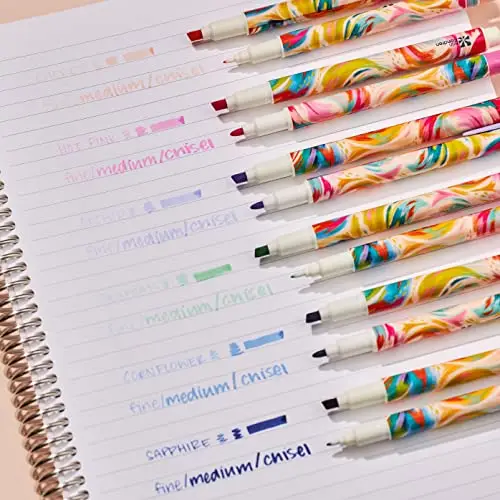 medium/chisel
HOT PINK
fine/medium/chisel
fine/medium/chisel
fine/medium/chisel
CORNFLOWER
fine/medium/chisel
SAPPHIRE
fine/medium/chisel